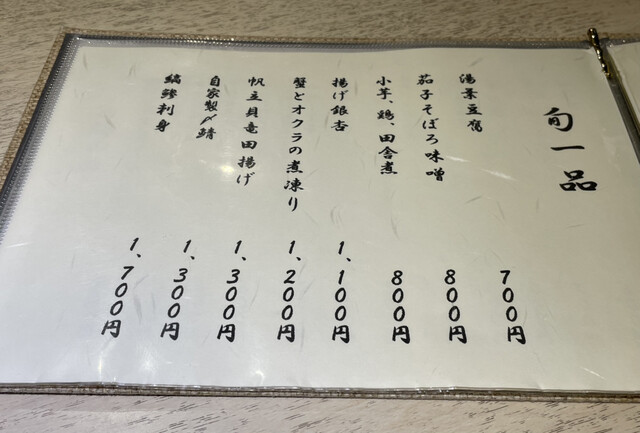 旬一品
湯葉豆腐 700円
茄子そぼろ味噌 800円
小芋、鶏、田舎煮 800円
揚げ銀杏 1、100円
蟹とオクラの煮凍り 1、200円
帆立貝竜田揚げ 1、300円
自家製〆鯖 1、300円
縞鯵刺身 1、700円